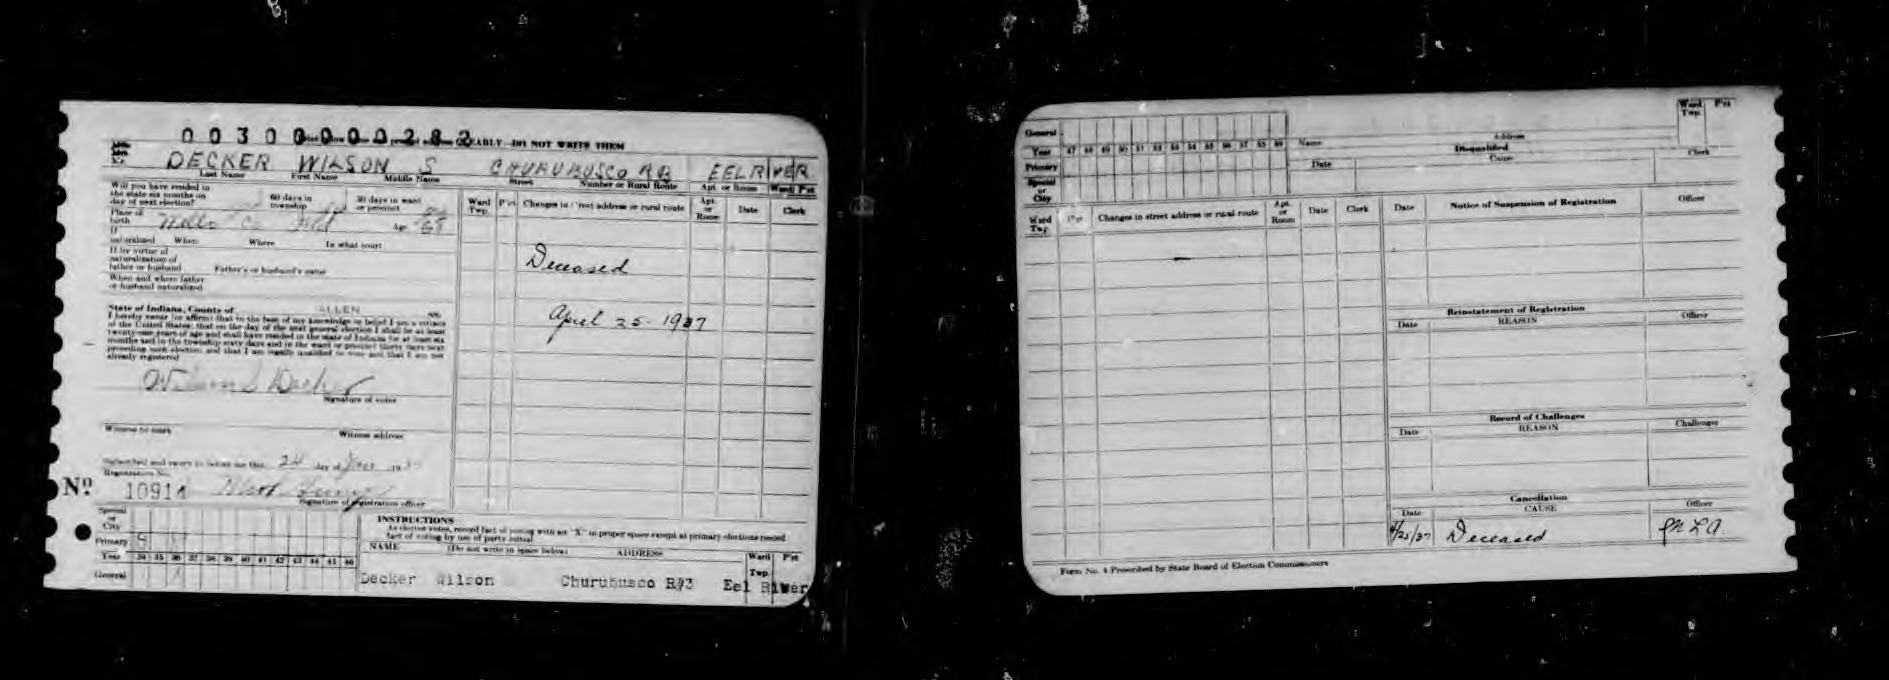 00300000282
CLEARLY DO NOT WRITE THEM
DECKER WILSON S CHURUBUSCO R3 EEL RIVER
Last Name First Name Middle Name Street Number or Rural Route Apt. or Room Ward Pct
Will you have resided in
the state six months on
day of next election?
60 days in
township
30 days in ward
or precinct
Place of
birth
Age 65
If
naturalized When Where In what court
If by virtue of
naturalization of
father or husband Father's or husband's name
When and where father
or husband naturalized
State of Indiana, County of ALLEN SS.
I hereby swear (or affirm) that to the best of my knowledge or belief I am a citizen
of the United States; that on the day of the next general election I shall be at least
twenty-one years of age and shall have resided in the state of Indiana for at least six
months and in the township sixty days and in the ward or precinct thirty days next
preceding such election and that I am legally qualified to vote and that I am not
already registered
Wilson S Decker
Signature of voter
Witness to mark Witness address
Subscribed and sworn to before me this 24 day of
Registration No.
No 10914
Signature of registration officer
Ward Twp. Pct Changes in street address or rural route Apt. or Room Date Clerk
Deceased
April 25-1937
Special
or
City
Primary
Year 34 35 36 37 38 39 40 41 42 43 44 45 46
General
INSTRUCTIONS
As elector votes, record fact of voting with an "X" in proper space except at primary elections record
fact of voting by use of party initial
NAME (Do not write in space below) ADDRESS Ward Twp. Pct
Decker Wilson Churubusco R#3 Eel River
General
Year 47 48 49 50 51 52 53 54 55 56 57 58 59
Primary
Special
or
City
Ward Twp. Pct
Name Address
Disqualified
Date Cause Clerk
Ward Twp. Pct Changes in street address or rural route Apt. or Room Date Clerk
Date Notice of Suspension of Registration Officer
Reinstatement of Registration
Date REASON Officer
Record of Challenges
Date REASON Challenger
Cancellation
Date CAUSE Officer
4/25/37 Deceased
Form No. 4 Prescribed by State Board of Election Commissioners